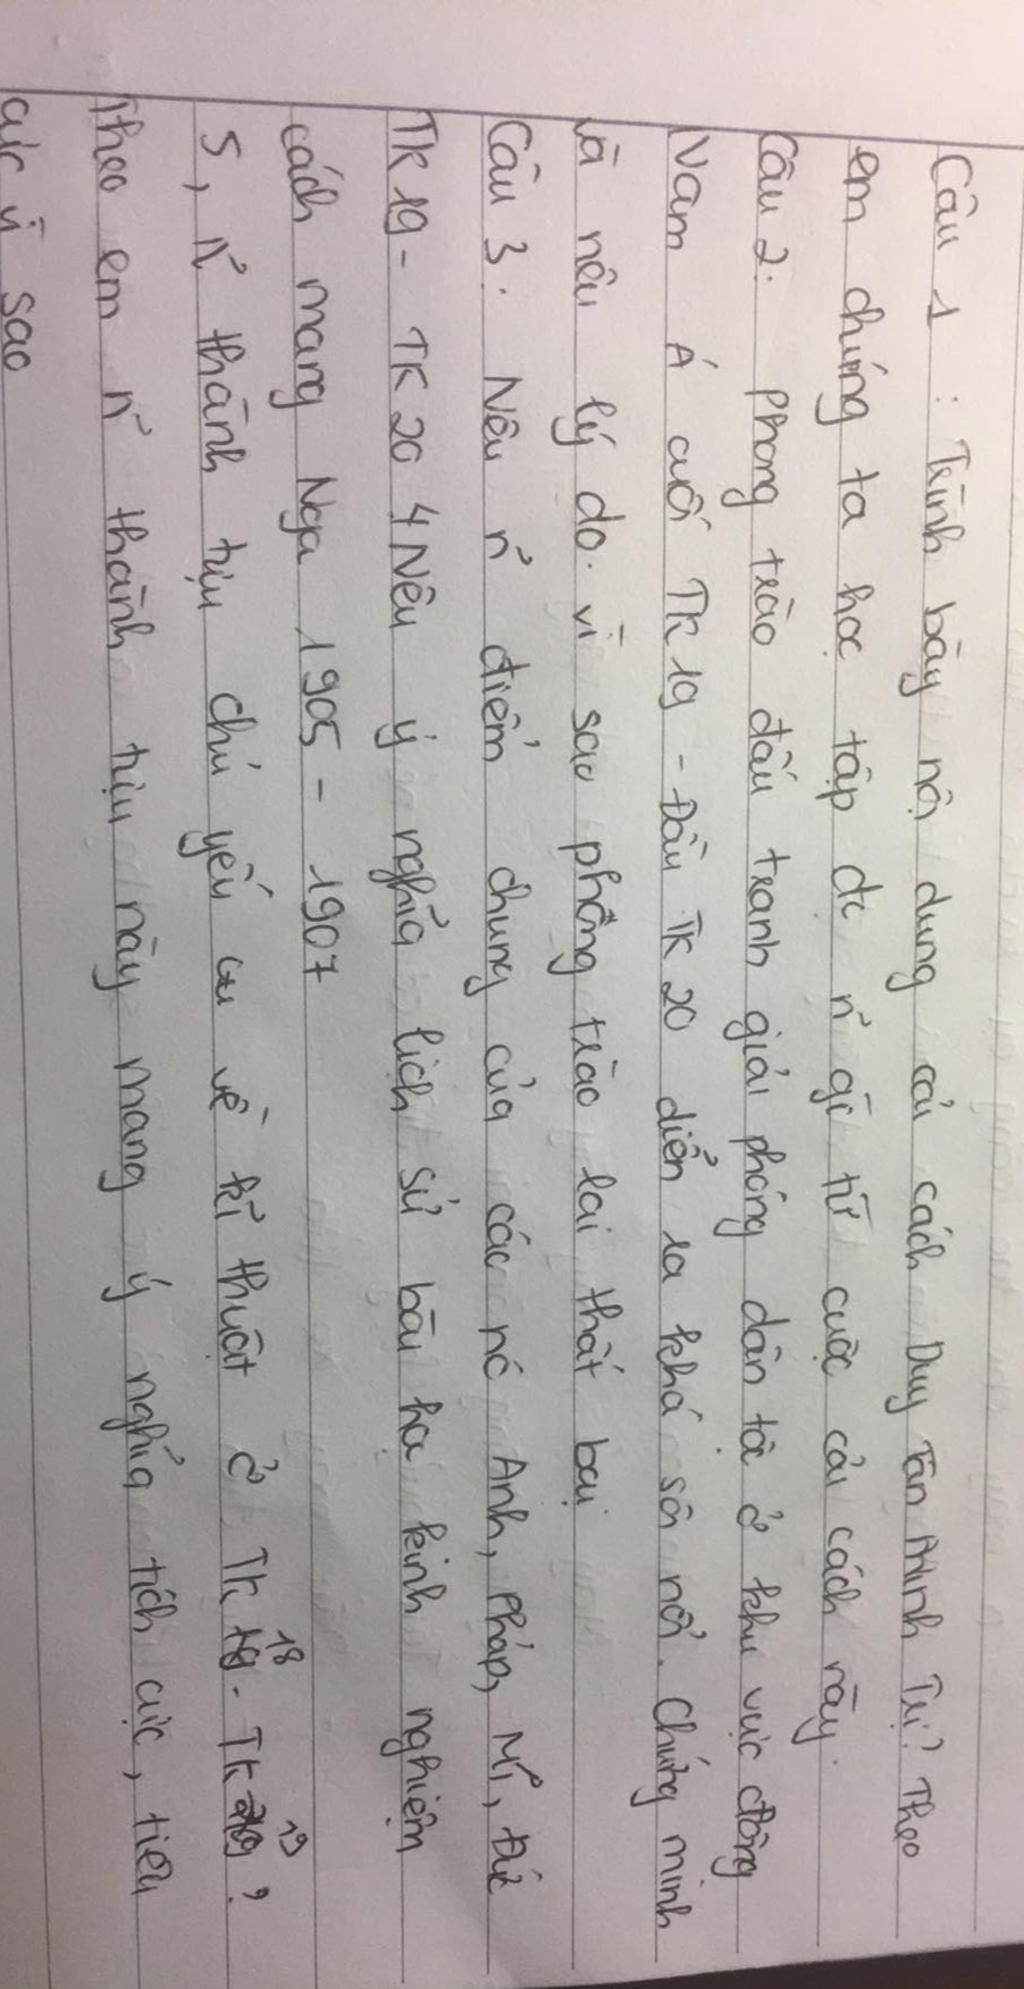 Câu 1 : Trình bày nội dung cải cách Duy Tân Minh Trị? Theo
em chúng ta học tập đc n~ gì từ cuộc cải cách này.
Câu 2: phong trào đấu tranh giải phóng dân tộc ở khu vực đông
Nam Á cuối TK 19 - Đầu TK 20 diễn ra khá sôi nổi. Chứng minh
và nêu lý do. vì sao phong trào lại thất bại
Câu 3: Nêu n~ điểm chung của các nc Anh, Pháp, Mĩ, Đức
TK 19 - TK 20 4 Nêu ý nghĩa lịch sử bài học kinh nghiệm
cách mạng Nga 1905 - 1907
5, n~ thành tựu chủ yếu về kĩ thuật ở TK 18 - TK 19?
Theo em n~ thành tựu này mang ý nghĩa tích cực, tiêu
cực vì sao